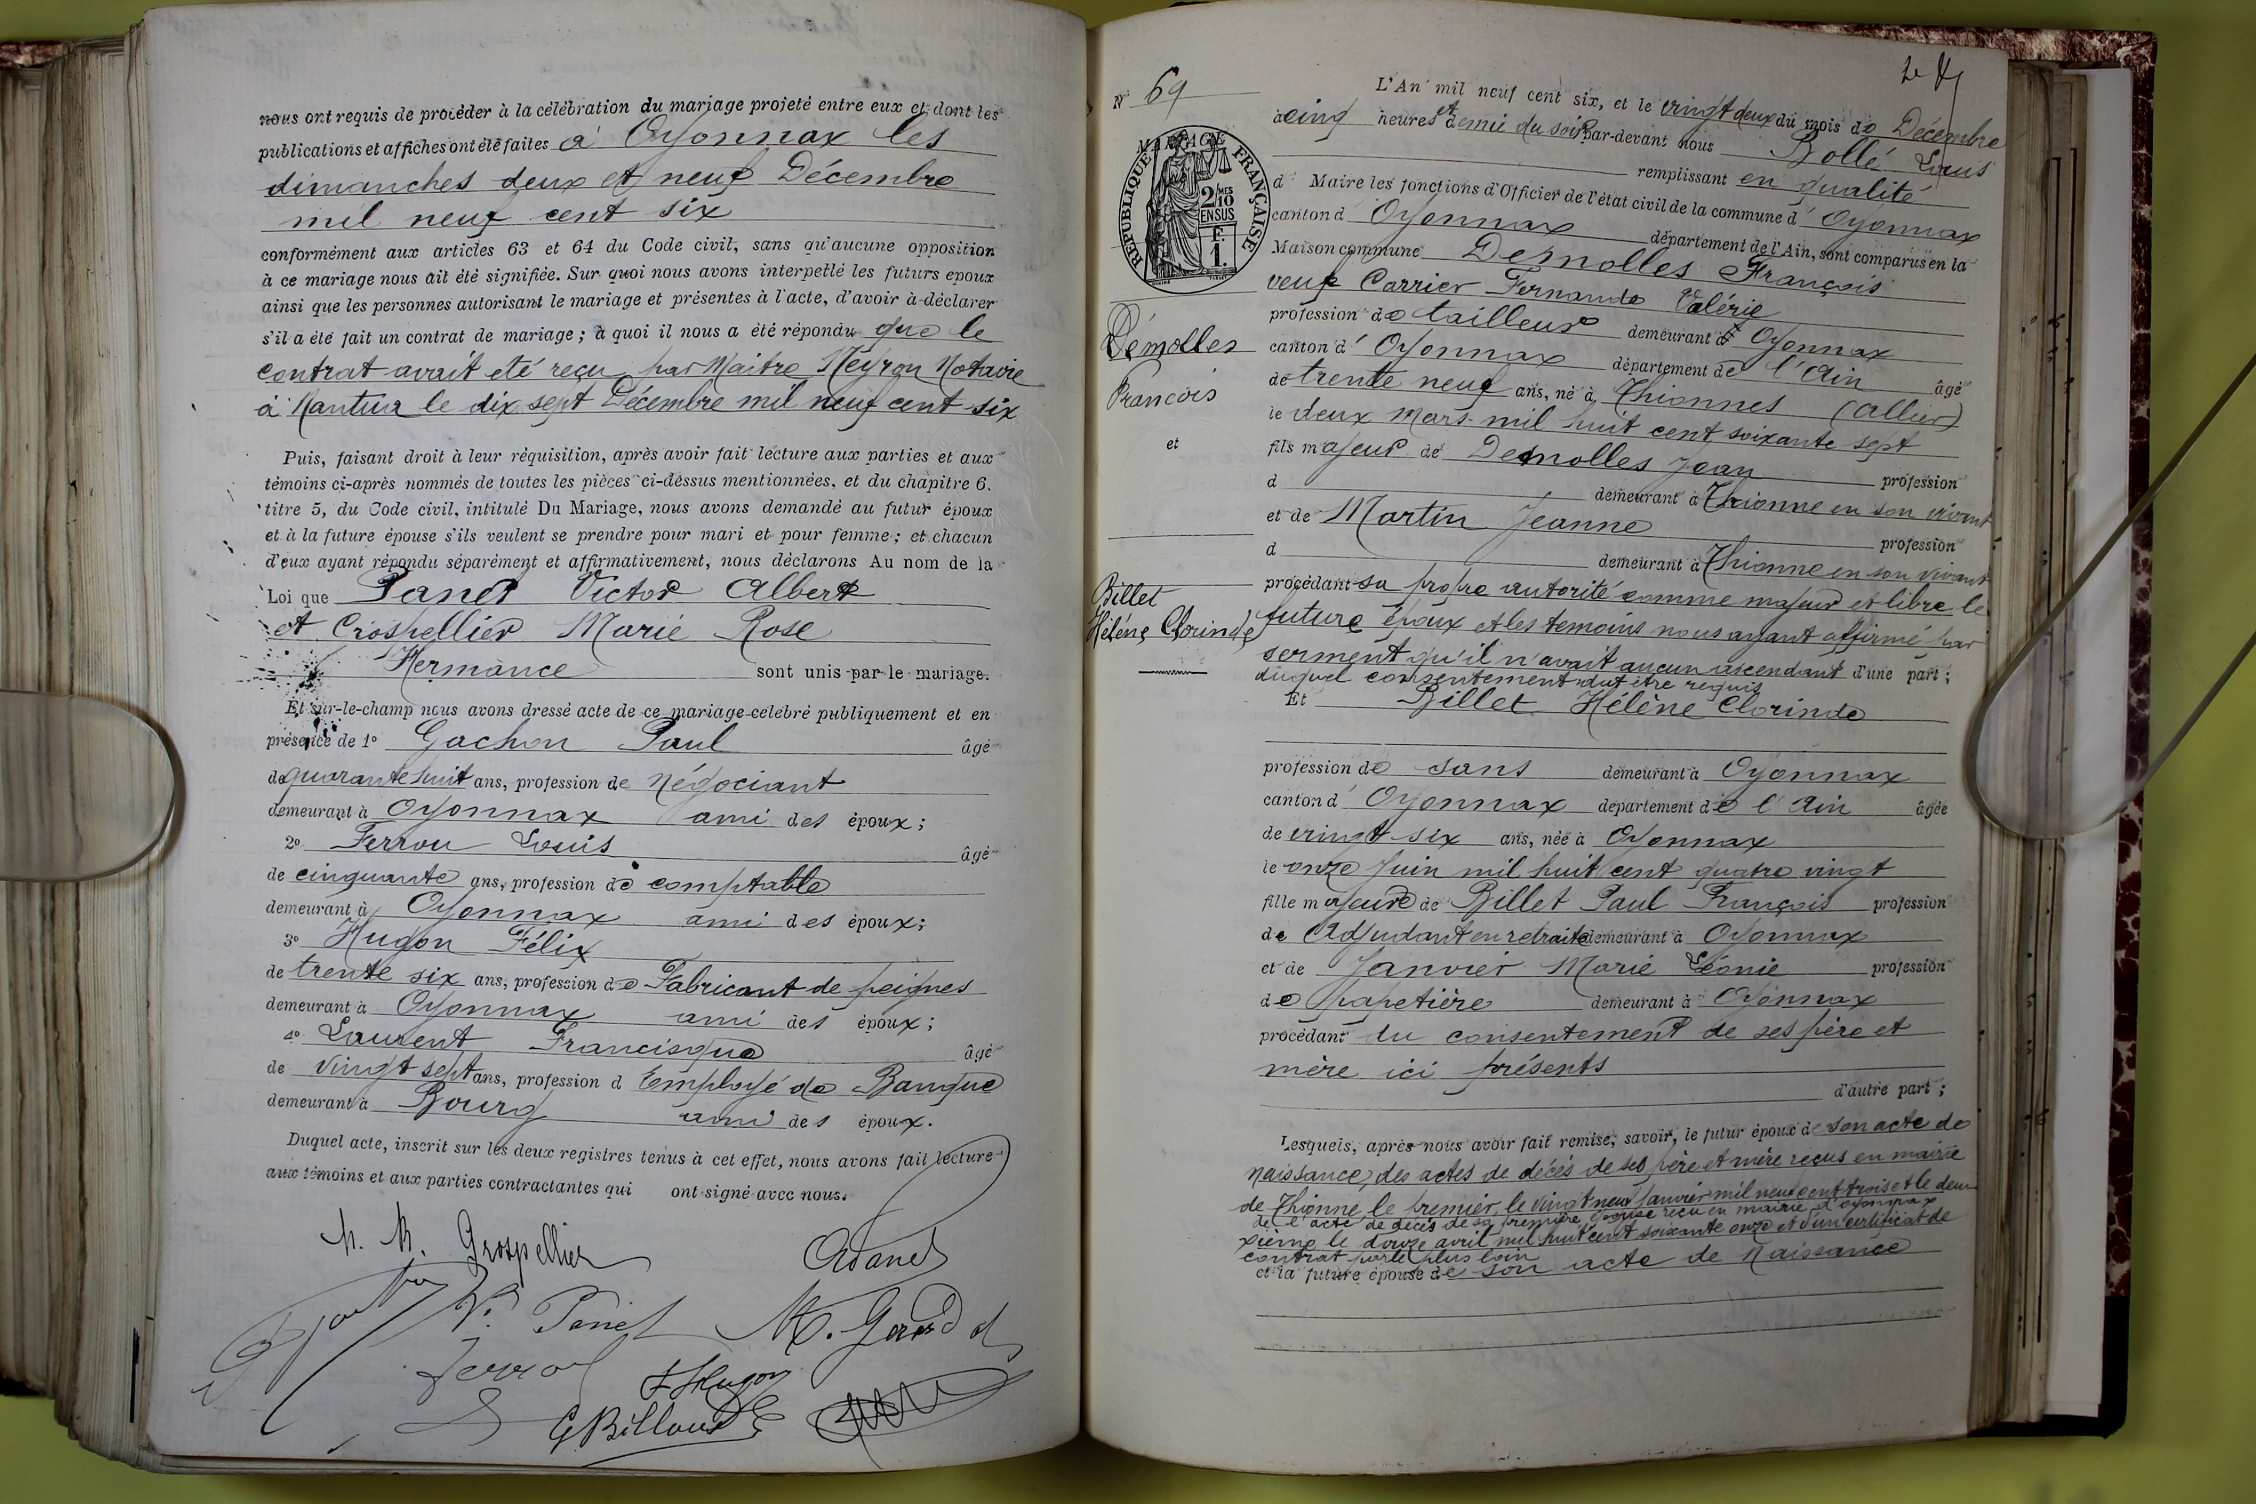 nous ont requis de procéder à la célébration du mariage projeté entre eux et dont les
publications et affiches ont été faites à Oyonnax les
dimanches deux et neuf Décembre
mil neuf cent six
conformément aux articles 63 et 64 du Code civil, sans qu'aucune opposition
à ce mariage nous ait été signifiée. Sur quoi nous avons interpellé les futurs epoux
ainsi que les personnes autorisant le mariage et présentes à l'acte, d'avoir à déclarer
s'il a été fait un contrat de mariage; à quoi il nous a été répondu que le
contrat avait eté reçu par Maitre Neyron Notaire
à Nantua le dix sept Décembre mil neuf cent six
Puis, faisant droit à leur réquisition, après avoir fait lecture aux parties et aux
témoins ci-après nommés de toutes les pièces ci-dessus mentionnées, et du chapitre 6.
titre 5, du Code civil, intitulé Du Mariage, nous avons demandé au futur époux
et à la future épouse s'ils veulent se prendre pour mari et pour femme; et chacun
d'eux ayant répondu séparément et affirmativement, nous déclarons Au nom de la
Loi que Panet Victor Albert
et Crospellier Marie Rose
Hermance sont unis par le mariage.
Et sur-le-champ nous avons dressé acte de ce mariage célébré publiquement et en
présence de 1° Gachon Paul âgé
de quarante huit ans, profession de négociant
demeurant à Oyonnax ami des époux;
2° Ferrou Louis âgé
de cinquante ans, profession de comptable
demeurant à Oyonnax ami des époux;
3° Hugon Félix
de trente six ans, profession de Fabricant de peignes
demeurant à Oyonnax ami des époux;
4° Laurent Francisque âgé
de vingt sept ans, profession d Employé de Banque
demeurant à Bourg ami des époux.
Duquel acte, inscrit sur les deux registres tenus à cet effet, nous avons fait lecture
aux témoins et aux parties contractantes qui ont signé avec nous.
Grospellier
V. Panet
F Hugon
G Billoud
N° 69
L'An mil neuf cent six, et le vingt deux du mois de Décembre
à cinq heures et demie du soir par-devant nous Bollé Louis
remplissant en qualité
d Maire les fonctions d'Officier de l'état civil de la commune d' Oyonnax
canton d' Oyonnax département de l'Ain, sont comparus en la
Maison commune Demolles François
veuf Carrier Fernande Valérie
profession de tailleur demeurant à Oyonnax
canton d' Oyonnax département de l'Ain âgé
de trente neuf ans, né à Thionnes (Allier)
le deux Mars mil huit cent soixante sept
fils majeur de Demolles Jean profession
d demeurant à Thionne en son vivant
et de Martin Jeanne profession
d demeurant à Thionne en son vivant
procédant sa propre autorité comme majeur et libre le
future époux et les temoins nous ayant affirmé par
serment qu'il n'avait aucun ascendant d'une part;
duquel consentement dut être requis
Et Billet Hélène Clorinde
profession de sans demeurant à Oyonnax
canton d' Oyonnax département de l'Ain âgée
de vingt six ans, née à Oyonnax
le onze Juin mil huit cent quatre vingt
fille majeure de Billet Paul François profession
de Adjudant en retraite demeurant à Oyonnax
et de Janvier Marie Léonie profession
de papetière demeurant à Oyonnax
procédant du consentement de ses père et
mère ici présents
d'autre part;
Lesquels, après nous avoir fait remise, savoir, le futur époux de son acte de
naissance, des actes de décés de ses père et mère reçus en mairie
de Thionne le premier, le vingt neuf Janvier mil neuf cent trois et le deu
de l'acte de décès de sa première épouse reçu en mairie d'Oyonnax
xième le douze avril mil huit cent soixante onze et d'un certificat de
contrat parlé plus loin
et la future épouse de son acte de naissance
MARIAGE
RÉPUBLIQUE FRANÇAISE
2/10 MES
EN SUS
F.
1.
Démolles
François
et
Billet
Hélène Clorinde